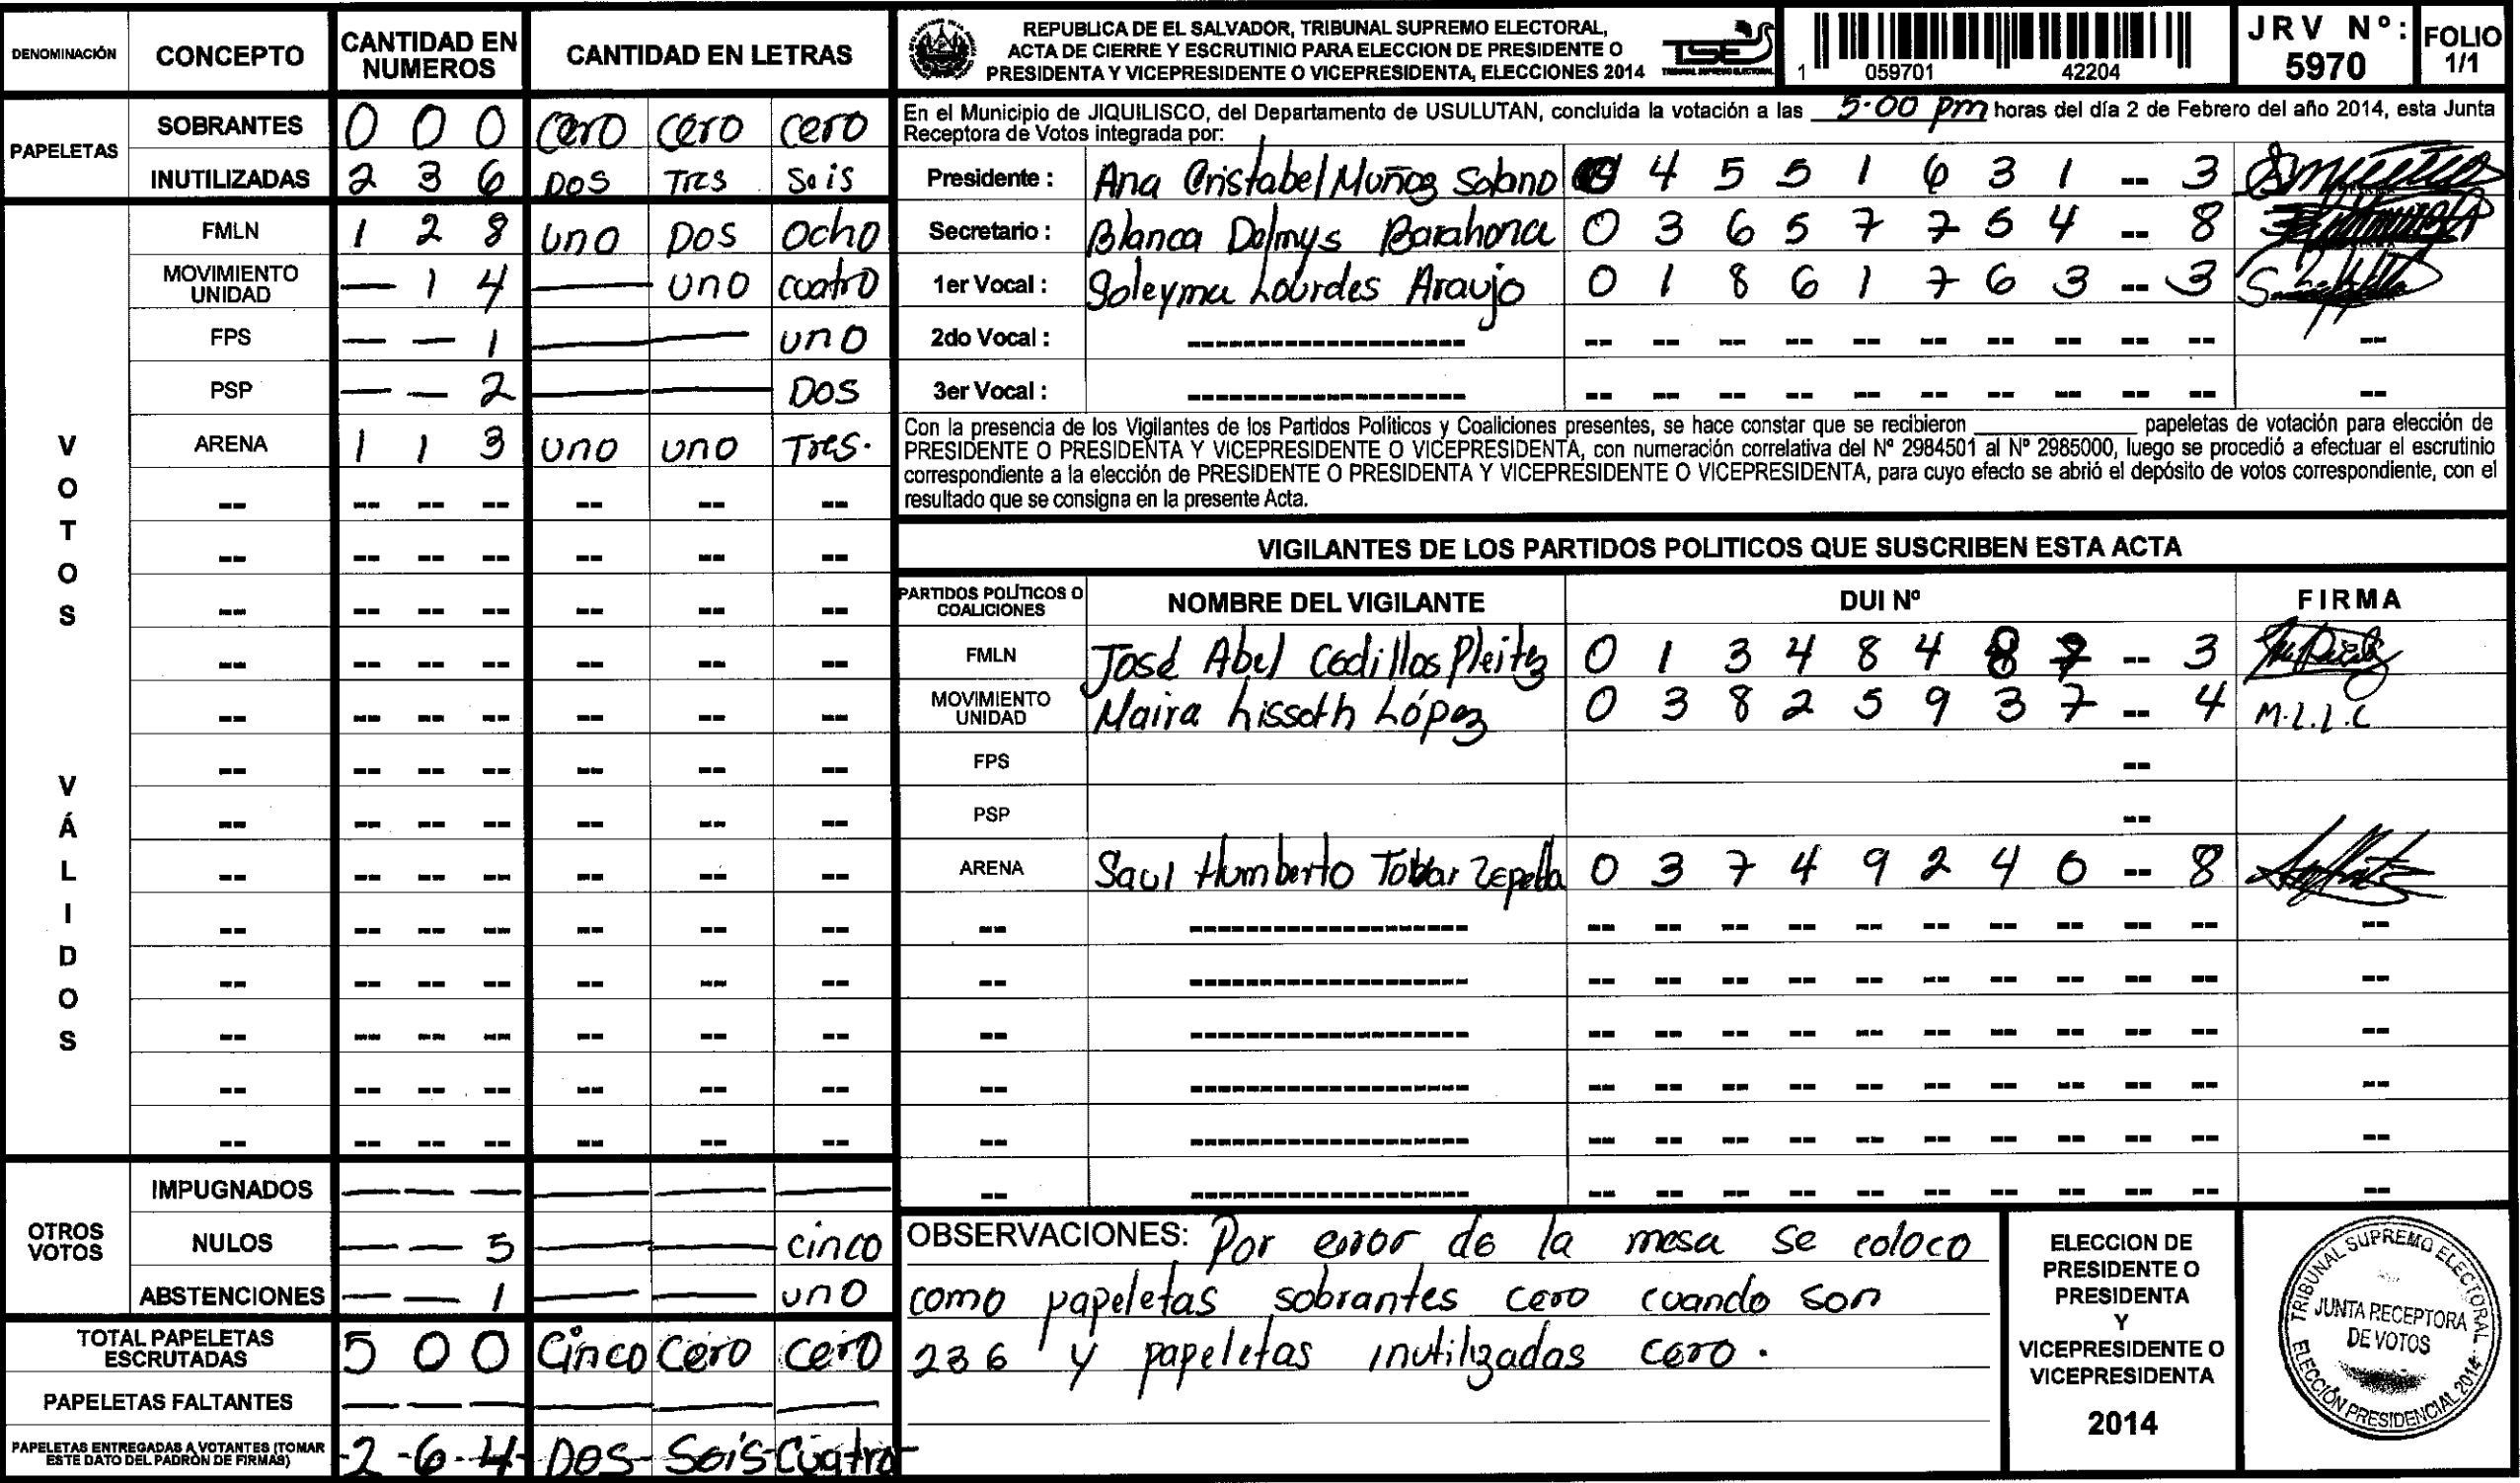 DENOMINACIÓN CONCEPTO CANTIDAD EN NUMEROS CANTIDAD EN LETRAS
PAPELETAS
SOBRANTES 0 0 0 cero cero cero
INUTILIZADAS 2 3 6 DOS TRES Seis
VOTOS VÁLIDOS
FMLN 1 2 8 uno DOS ocho
MOVIMIENTO UNIDAD — 1 4 — uno cuatro
FPS — — 1 — uno
PSP — — 2 — DOS
ARENA 1 1 3 uno uno Tres.
OTROS VOTOS
IMPUGNADOS — — — — — —
NULOS — — 5 — — cinco
ABSTENCIONES — — 1 — — uno
TOTAL PAPELETAS ESCRUTADAS 5 0 0 Cinco Cero cero
PAPELETAS FALTANTES — — — — — —
PAPELETAS ENTREGADAS A VOTANTES (TOMAR ESTE DATO DEL PADRÓN DE FIRMAS) -2-6-4- DOS-Seis-Cuatro-
REPUBLICA DE EL SALVADOR, TRIBUNAL SUPREMO ELECTORAL,
ACTA DE CIERRE Y ESCRUTINIO PARA ELECCION DE PRESIDENTE O
PRESIDENTA Y VICEPRESIDENTE O VICEPRESIDENTA, ELECCIONES 2014
TSE
TRIBUNAL SUPREMO ELECTORAL
1 059701 42204
JRV Nº: 5970
FOLIO 1/1
En el Municipio de JIQUILISCO, del Departamento de USULUTAN, concluida la votación a las 5:00 pm horas del día 2 de Febrero del año 2014, esta Junta
Receptora de Votos integrada por:
Presidente : Ana Cristabel Muñoz Solano 4 5 5 1 6 3 1 -- 3
Secretario : Blanca Delmys Barahona 0 3 6 5 7 7 5 4 -- 8
1er Vocal : Soleyma Lourdes Araujo 0 1 8 6 1 7 6 3 -- 3
2do Vocal :
3er Vocal :
Con la presencia de los Vigilantes de los Partidos Políticos y Coaliciones presentes, se hace constar que se recibieron ____ papeletas de votación para elección de
PRESIDENTE O PRESIDENTA Y VICEPRESIDENTE O VICEPRESIDENTA, con numeración correlativa del Nº 2984501 al Nº 2985000, luego se procedió a efectuar el escrutinio
correspondiente a la elección de PRESIDENTE O PRESIDENTA Y VICEPRESIDENTE O VICEPRESIDENTA, para cuyo efecto se abrió el depósito de votos correspondiente, con el
resultado que se consigna en la presente Acta.
VIGILANTES DE LOS PARTIDOS POLITICOS QUE SUSCRIBEN ESTA ACTA
PARTIDOS POLÍTICOS O COALICIONES NOMBRE DEL VIGILANTE DUI Nº FIRMA
FMLN José Abel Cedillos Pleitez 0 1 3 4 8 4 8 7 -- 3
MOVIMIENTO UNIDAD Maira Lisseth López 0 3 8 2 5 9 3 7 -- 4 M.L.L.C
FPS --
PSP --
ARENA Saul Humberto Tobar Zepeda 0 3 7 4 9 2 4 0 -- 8
OBSERVACIONES: Por error de la mesa se coloco
como papeletas sobrantes cero cuando son
236 y papeletas inutilizadas cero.
ELECCION DE
PRESIDENTE O
PRESIDENTA
Y
VICEPRESIDENTE O
VICEPRESIDENTA
2014
TRIBUNAL SUPREMO ELECTORAL
JUNTA RECEPTORA
DE VOTOS
ELECCIÓN PRESIDENCIAL 2014